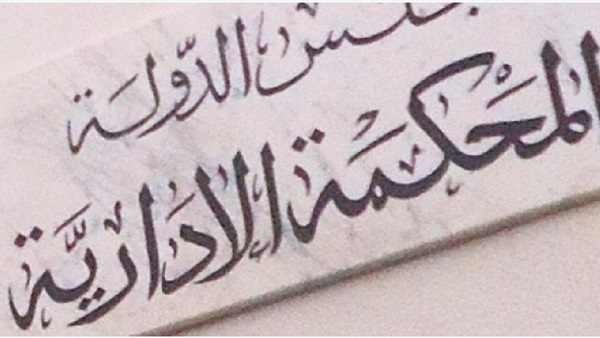 مجلس الدّولة
المَحكَمَة الادَاريَّة